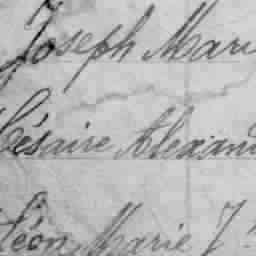 Joseph Mari
Césaire Alexand
Léon Marie J